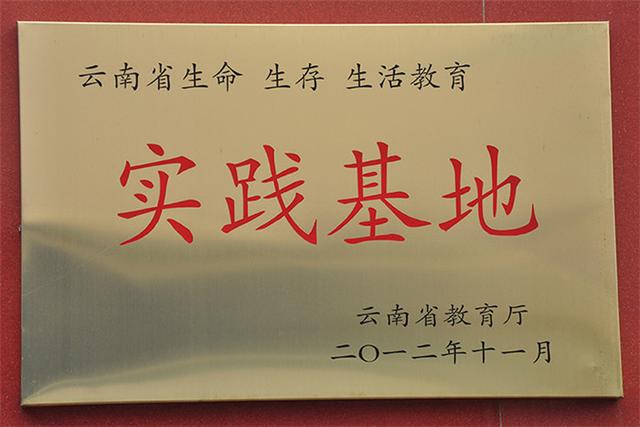 云南省生命 生存 生活教育
实践基地
云南省教育厅
二〇一二年十一月